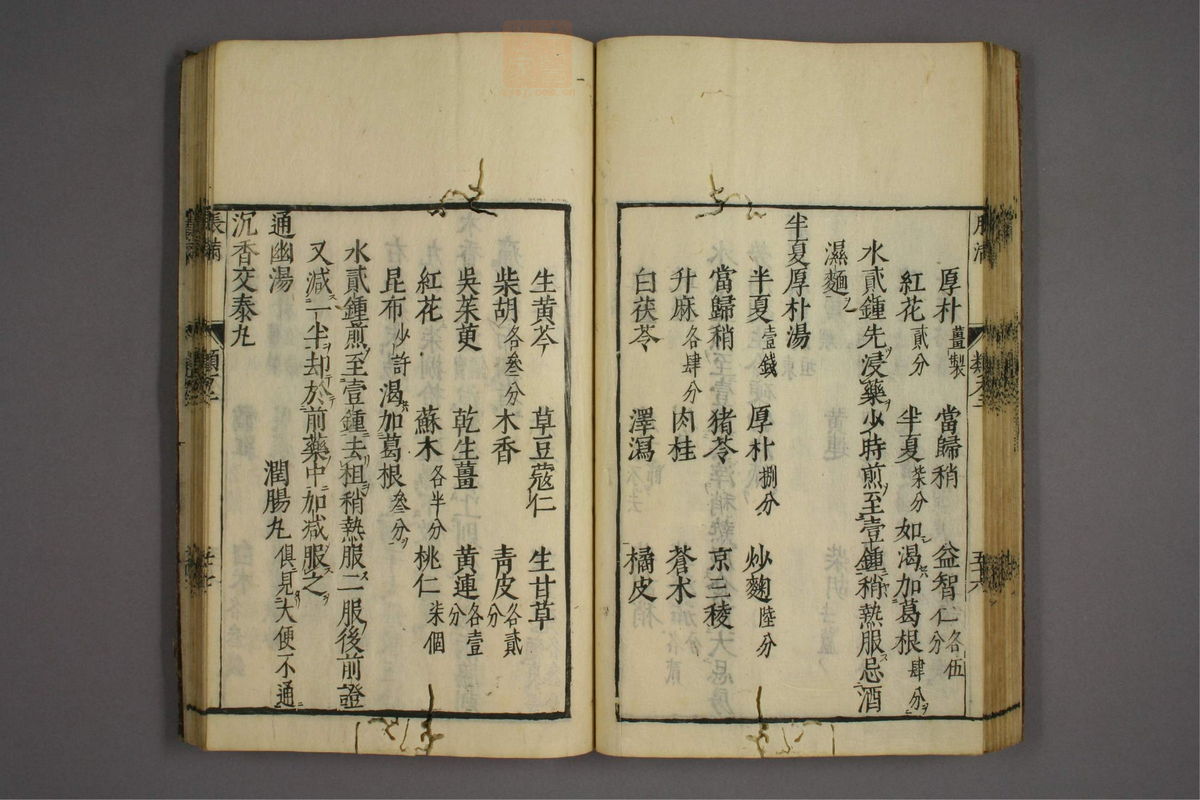 厚朴薑製 當歸稍 益智仁各伍分
紅花貳分 半夏柒分 如渴加葛根肆分
水貳鍾先浸藥少時煎至壹鍾稍熱服忌酒
濕麵
半夏厚朴湯
半夏壹錢 厚朴捌分 炒麴陸分
當歸稍 猪苓 京三稜
升麻各肆分 肉桂 蒼朮
白茯苓 澤瀉 橘皮
生黄芩 草豆蔻仁 生甘草
柴胡各叁分 木香 青皮各貳分
吳茱萸 乾生薑 黄連各壹分
紅花 蘇木各半分 桃仁柒個
昆布少許 渴加葛根叁分
水貳鍾煎至壹鍾去柤稍熱服二服後前證
又減一半却於前藥中加减服之
通幽湯 潤腸丸俱見大便不通
沉香交泰丸